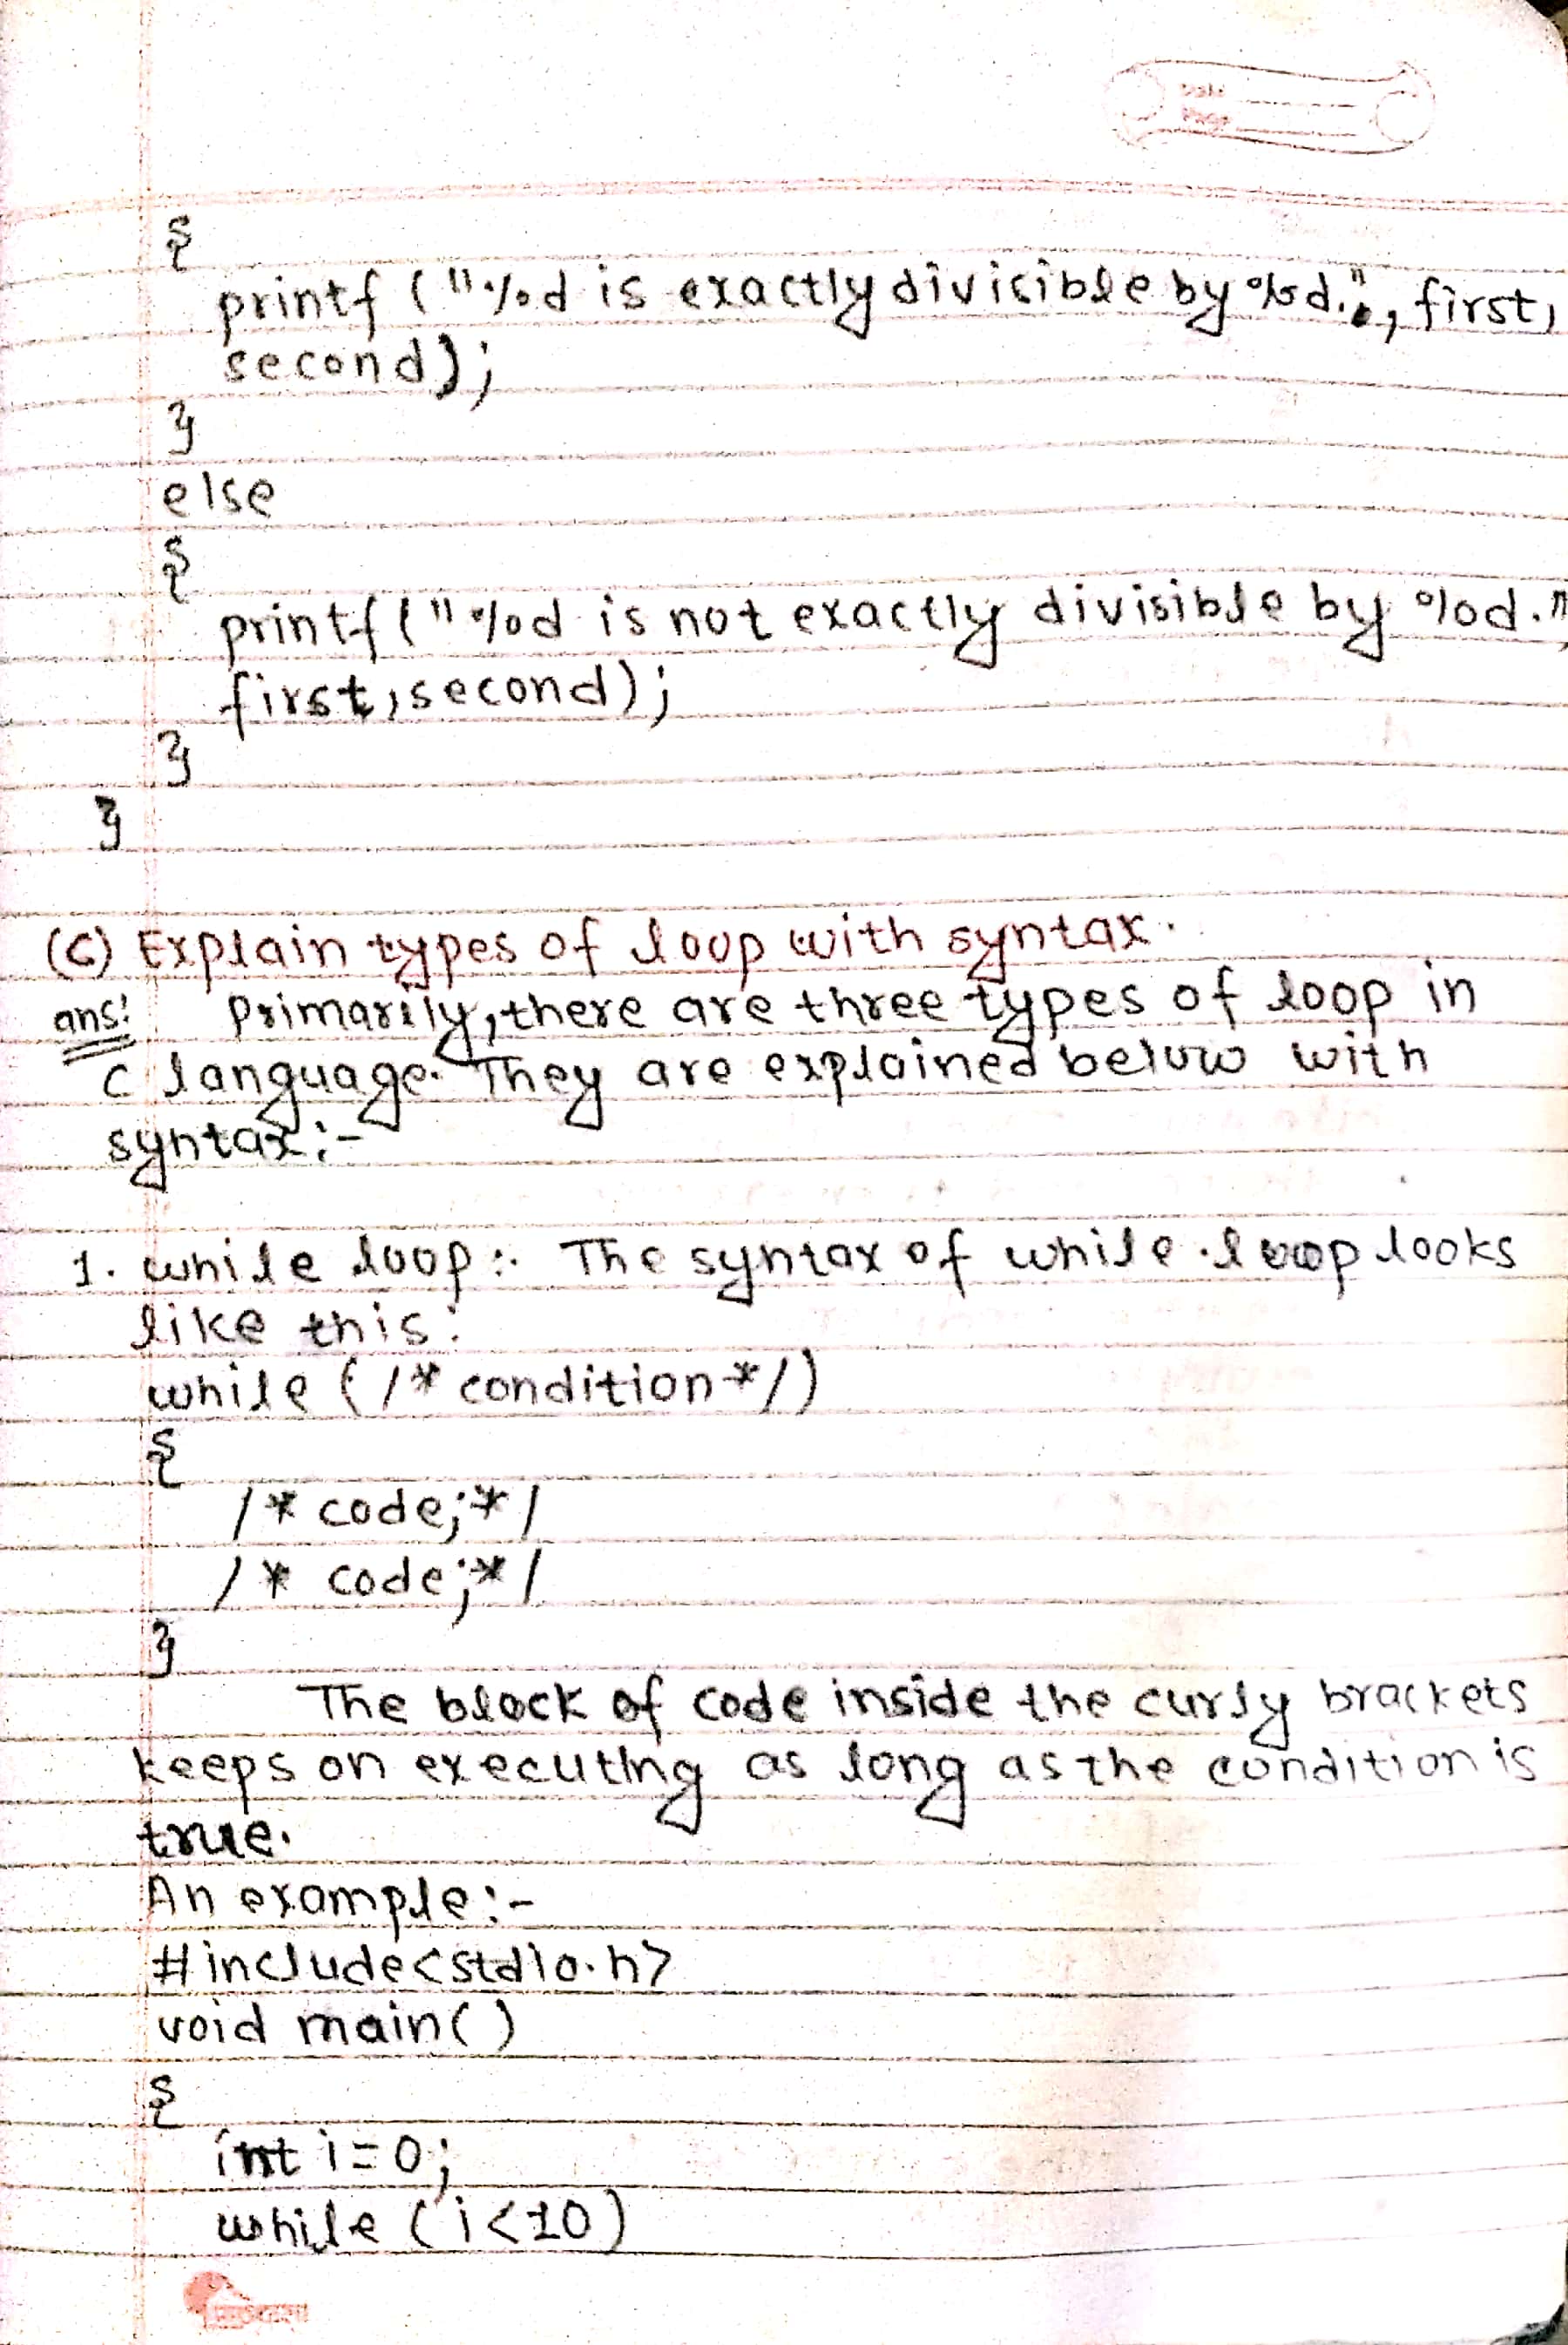 {
printf ("%d is exactly divisible by %d.", first,
second);
}
else
{
printf("%d is not exactly divisible by %d.",
first, second);
}
}
(C) Explain types of loop with syntax.
ans: Primarily, there are three types of loop in
C language. They are explained below with
syntax:-
1. while loop:- The syntax of while loop looks
like this:
while (/* condition */)
{
/* code;*/
/* code;*/
}
The block of code inside the curly brackets
keeps on executing as long as the condition is
true.
An example:-
#include<stdio.h>
void main()
{
int i=0;
while (i<10)